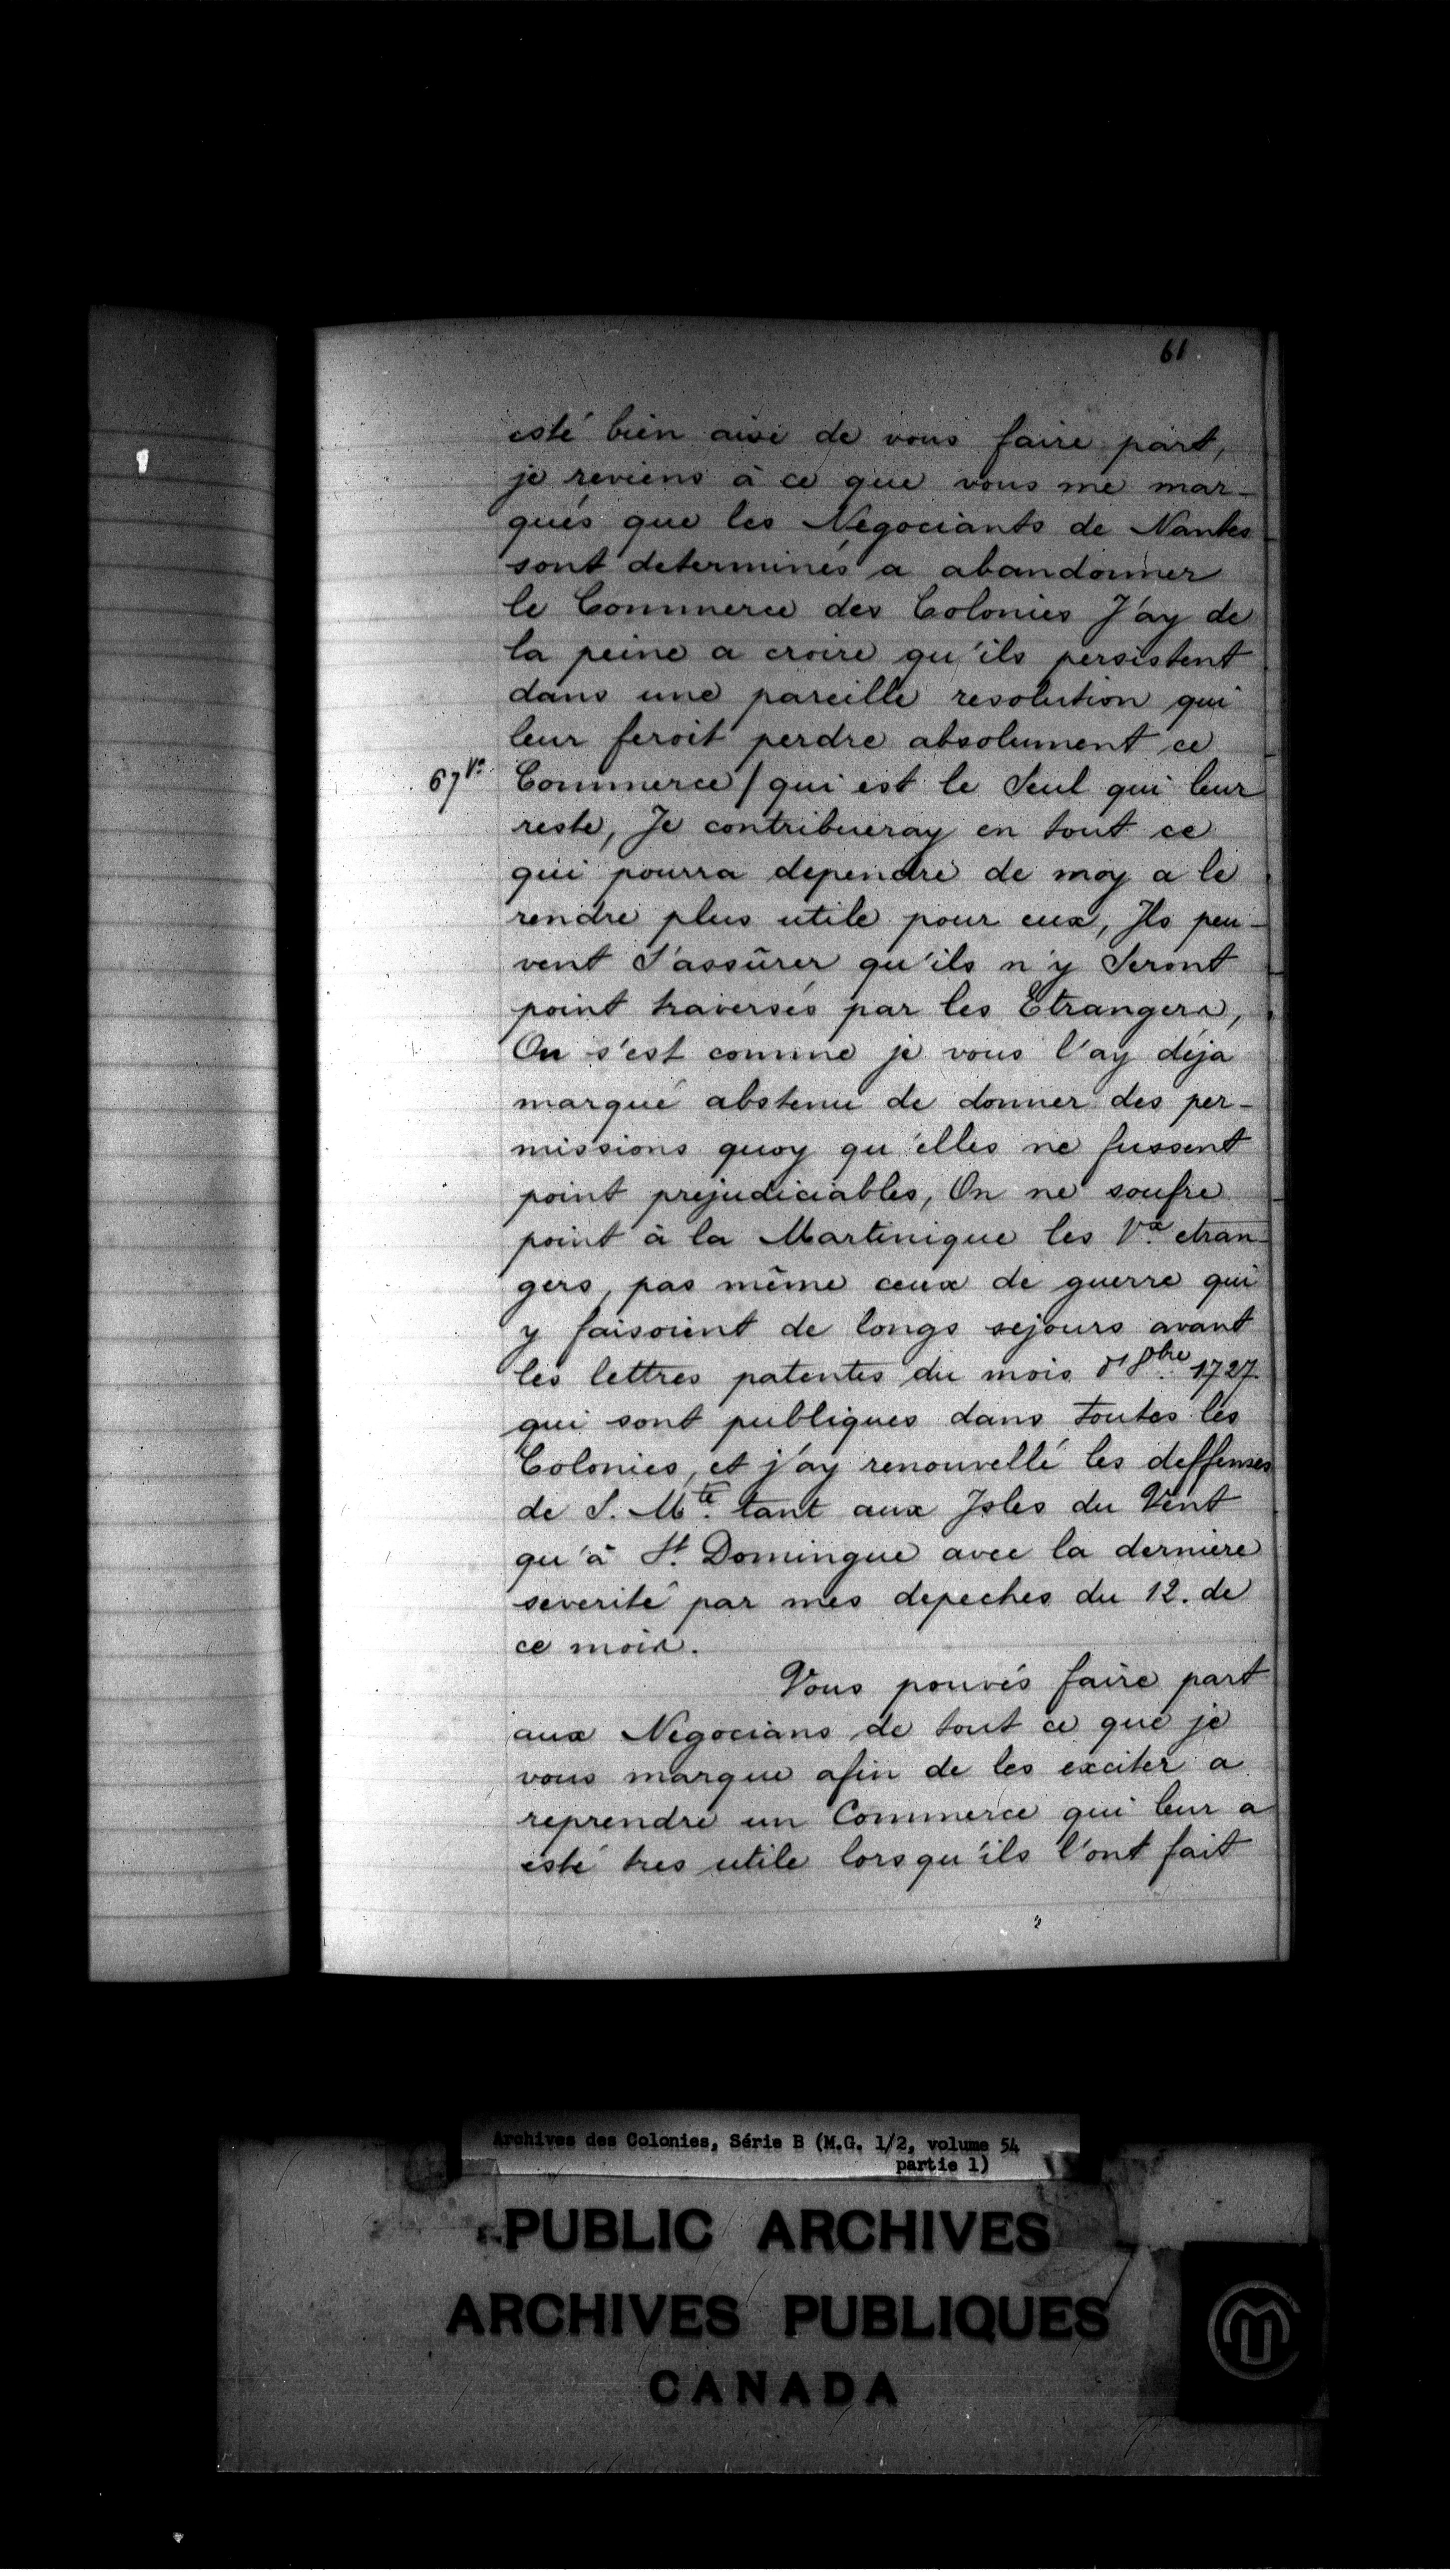 61.
esté bien aise de vous faire part,
je reviens à ce que vous me mar-
qués que les Negociants de Nantes
sont determinés a abandonner
le Commerce des Colonies J'ay de
la peine a croire qu'ils persistent
dans une pareille resolution qui
leur feroit perdre absolument ce
67 Vo Commerce / qui est le Seul qui leur
reste, Je contribueray en tout ce
qui pourra dependre de moy a le
rendre plus utile pour eux, Ils peu-
vent S'assûrer qu'ils n'y Seront
point traversés par les Etrangers,
On s'est comme je vous l'ay déja
marqué abstenu de donner des per-
missions quoy qu'elles ne fussent
point prejudiciables, On ne soufre
point à la Martinique les Vx. etran-
gers, pas même ceux de guerre qui
y faisoient de longs sejours avant
les lettres patentes du mois d'8bre 1727.
qui sont publiques dans toutes les
Colonies, et j'ay renouvellé les deffenses
de S. Mté. tant aux Isles du Vent
qu'à St. Domingue avec la derniere
severité par mes depeches du 12. de
ce mois.
Vous pouvés faire part
aux Negocians de tout ce que je
vous marque afin de les exciter a
reprendre un Commerce qui leur a
esté tres utile lorsqu'ils l'ont fait
Archives des Colonies, Série B (M.G. 1/2, volume 54
partie 1)
PUBLIC ARCHIVES
ARCHIVES PUBLIQUES
CANADA